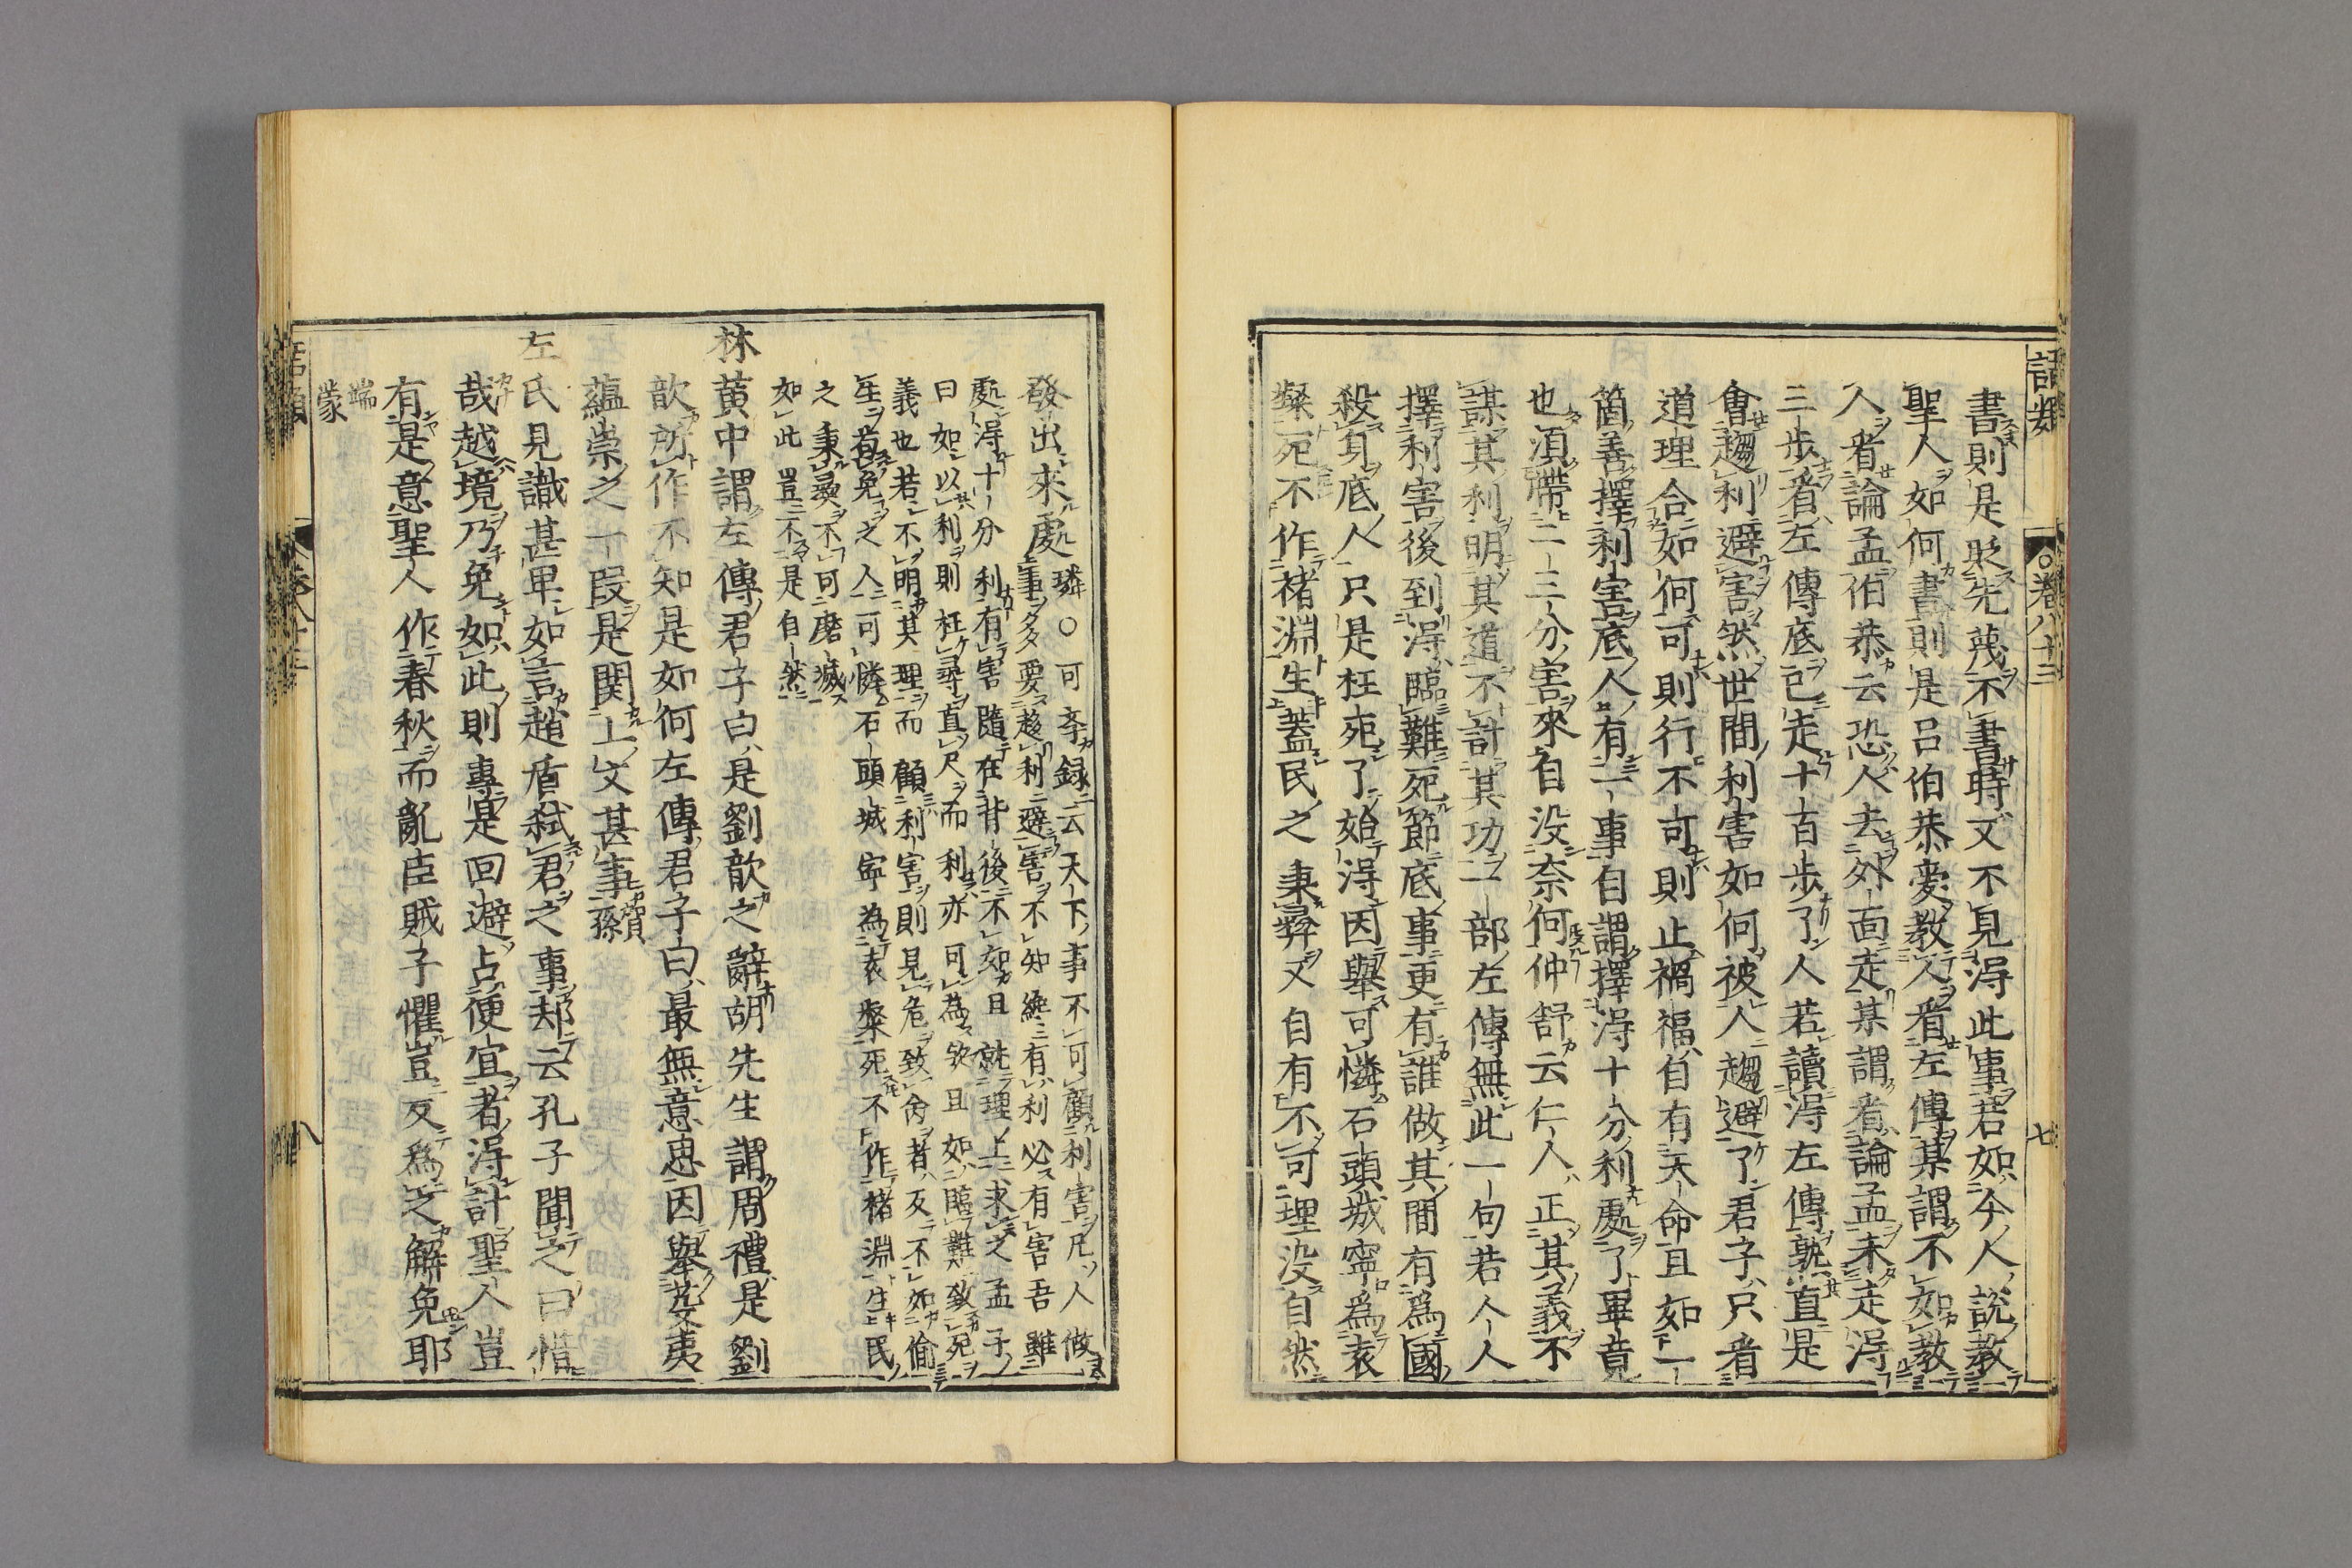 語類
卷八十三
七
書則是貶先蔑不書時又不見得此事君如今人說教
聖人如何書則是呂伯恭愛教人看左傳某謂不如教
人看論孟伯恭云恐人去外面走某謂看論孟未走得
三步看左傳底已走十百步了人若讀得左傳熟直是
會趨利避害然世間利害如何被人趨避了君子只看
道理合如何可則行不可則止禍福自有天命且如一
箇善擇利害底人有一事自謂擇得十分利處了畢竟
也須帶二三分害來自没奈何仲舒云仁人正其義不
謀其利明其道不計其功一部左傳無此一句若人人
擇利害後到得臨難死節底事更有誰做其間有爲國
殺身底人只是枉死了始得因舉可憐石頭城寧爲袁
粲死不作褚淵生蓋民之秉彝又自有不可理没自然
發出來處璘○可學録云天下事不可顧利害凡人做
事多要趨利避害不知纔有利必有害吾雖
處得十分利有害隨在背後不如且就理上求之孟子
曰如以利則枉尋直尺而利亦可為歟且如臨難致死
義也若不明其理而顧利害則見危致命者反不如偷
生苟免之人可憐石頭城寧為袁粲死不作褚淵生民
之秉彝不可磨滅
如此豈不是自然
林黄中謂左傳君子曰是劉歆之辭胡先生謂周禮是劉
歆所作不知是如何左傳君子曰最無意思因舉芟夷
蘊崇之一段是関上文甚事賀孫
左氏見識甚卑如言趙盾弑君之事却云孔子聞之曰惜
哉越境乃免如此則專是回避占便宜者得計聖人豈
有是意聖人作春秋而亂臣賊子懼豈反爲之解免耶
端
蒙
語類
卷八十三
八